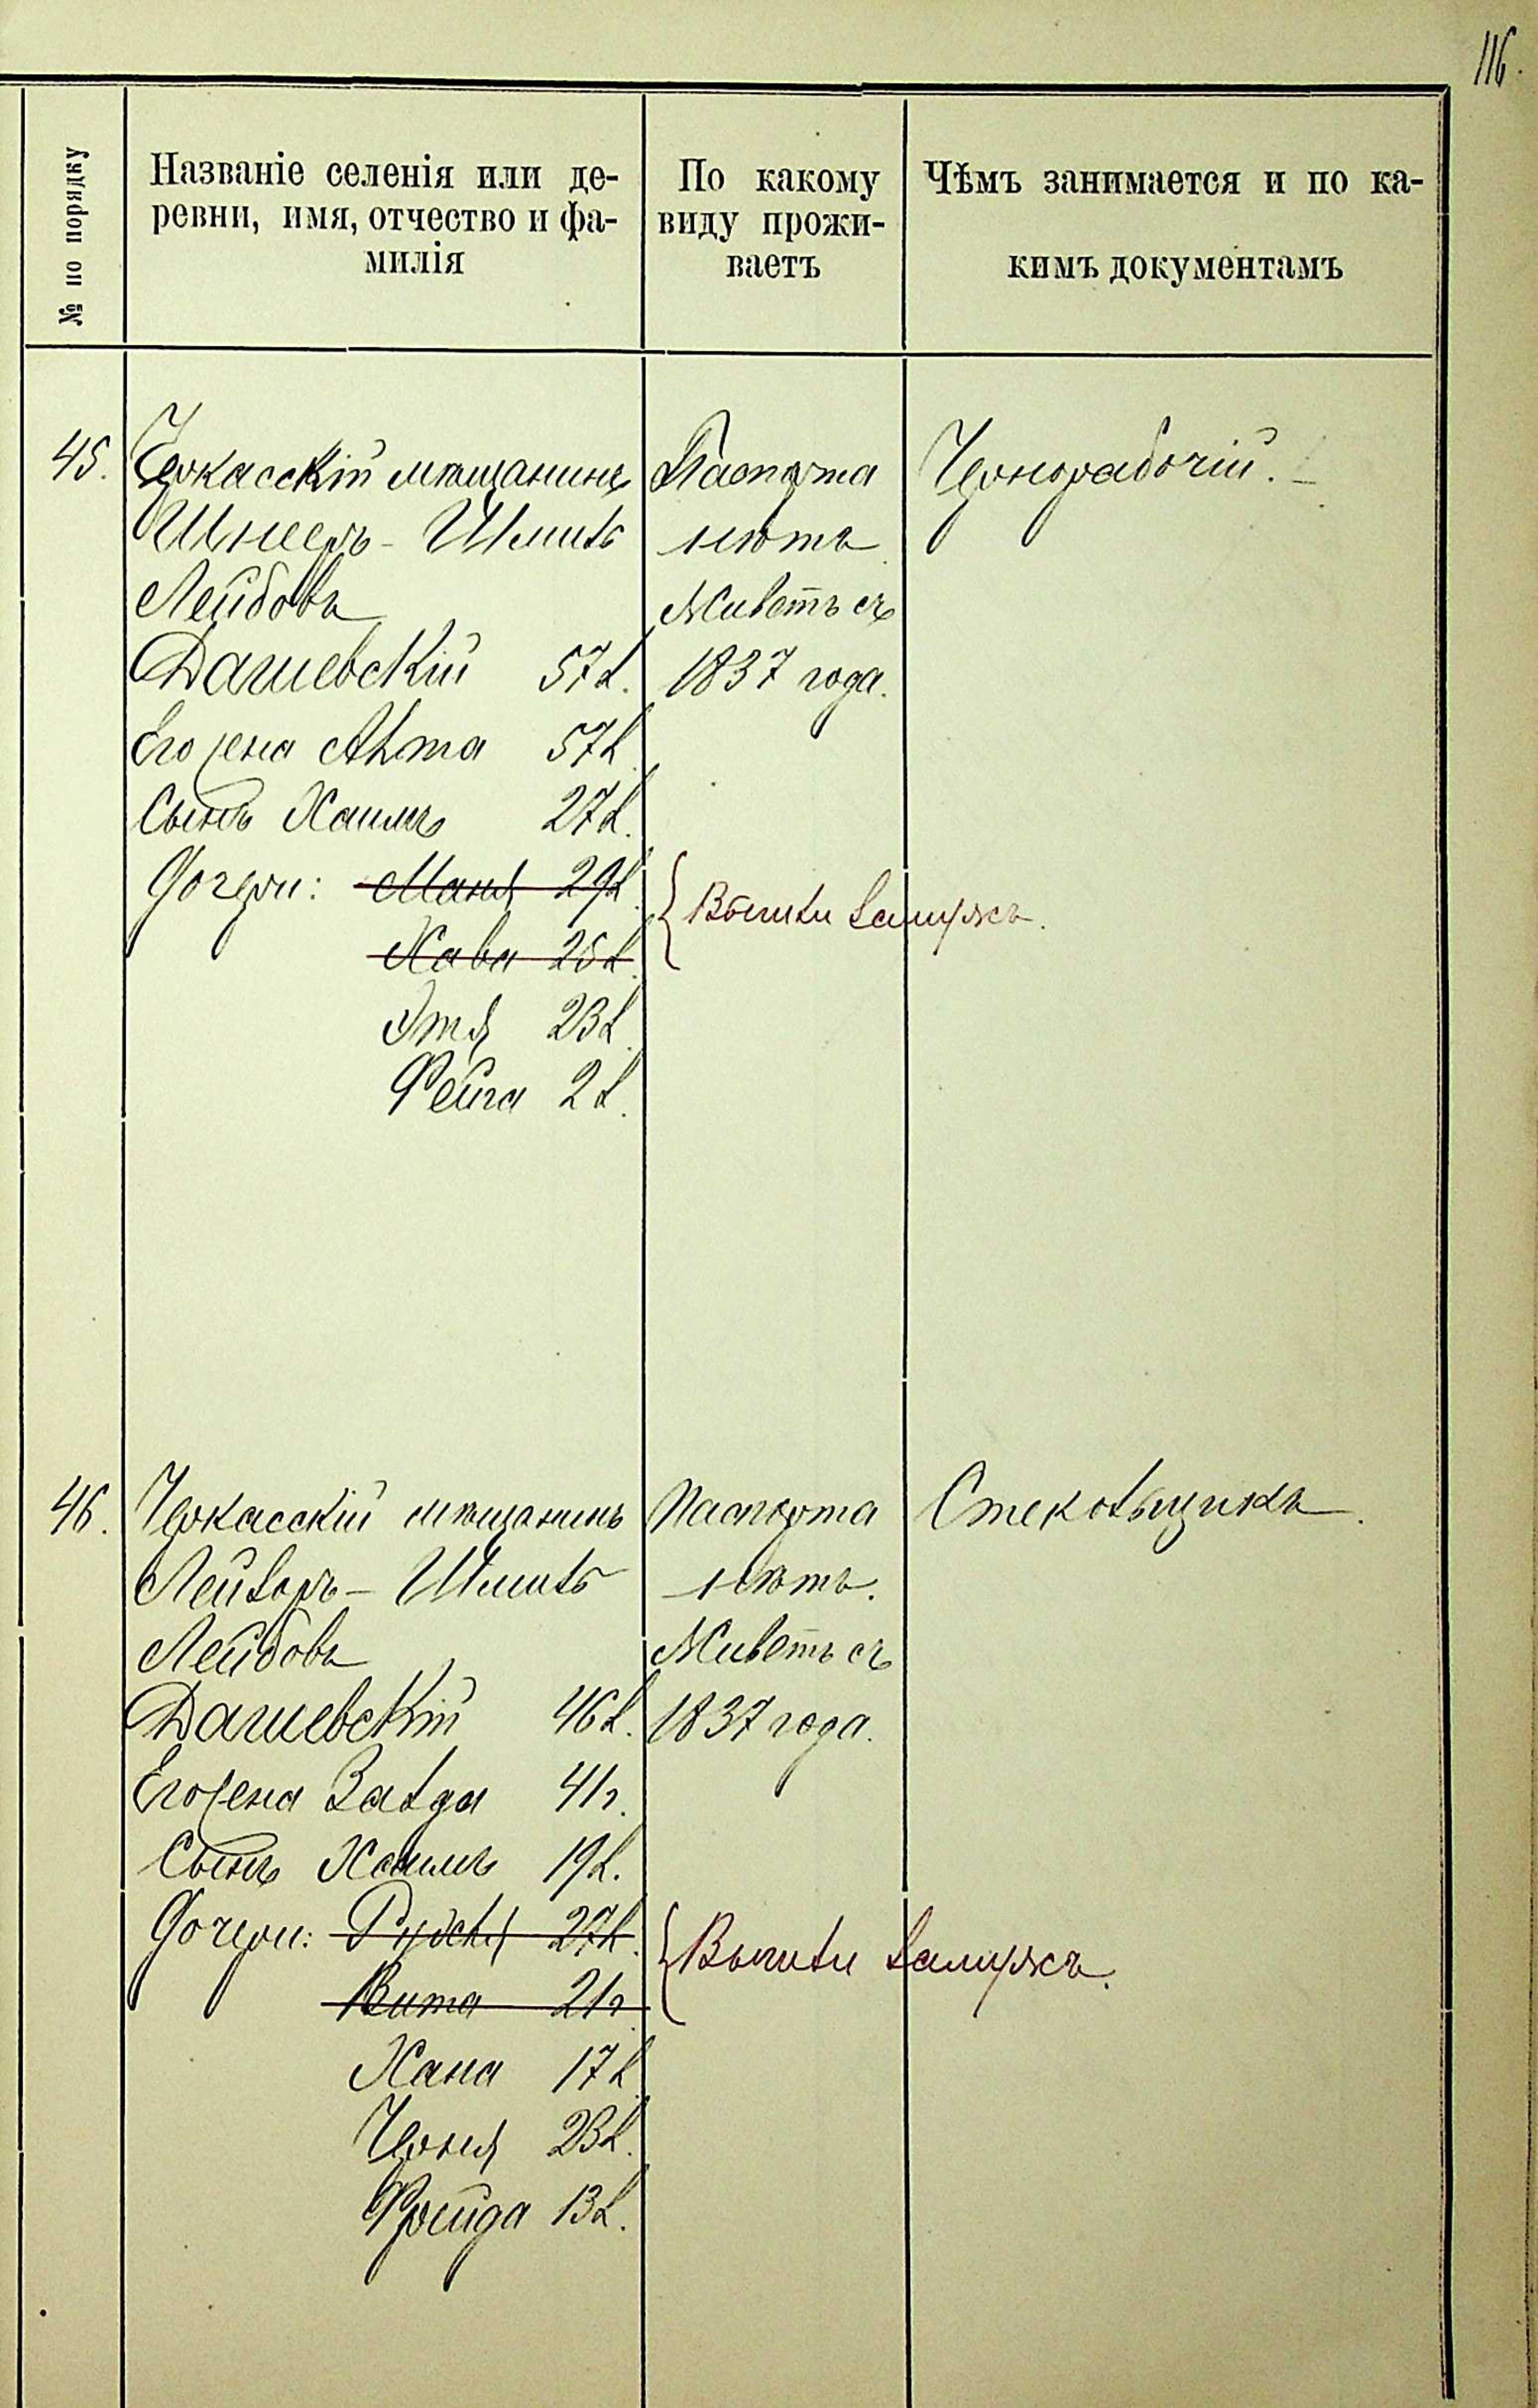 116.
№ по порядку
Названіе селенія или де-
ревни, имя, отчество и фа-
милія
По какому
виду прожи-
ваетъ
Чѣмъ занимается и по ка-
кимъ документамъ
45.
Черкасскій мѣщанинъ
Шнееръ - Шмилъ
Лейбовъ
Дашевскій 57 л.
Его жена 57 л.
Сынъ Хаимъ 27 л.
Дочери: Маня 29 л.
Хава 25 л.
Этя 23 л.
Фейга 2 л.
Паспорта
нѣтъ
Живетъ съ
1837 года.
{ Вышли замужъ.
Чернорабочій. –
46.
Черкасскій мѣщанинъ
Лейзоръ - Шмилъ
Лейбовъ
Дашевскій 46 л.
Его жена Залда 41 г.
Сынъ Хаимъ 19 л.
Дочери: 27 л.
Вита 21 г.
Хана 17 л.
Черня 23 л.
Фрейда 13 л.
Паспорта
нѣтъ.
Живетъ съ
1837 года.
{ Вышли замужъ.
Стекольщикъ.